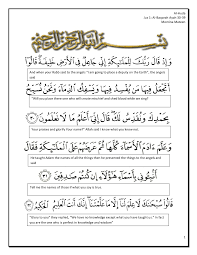 Al Huda
Juz 1: Al Baqarah (Ayah 30-39)
بسم الله الرحمن الرحيم
وَإِذْ قَالَ رَبُّكَ لِلْمَلَٰٓئِكَةِ إِنِّى جَاعِلٌ فِى ٱلْأَرْضِ خَلِيفَةً قَالُوٓا۟
And when your Rabb said to the angels "I am going to place a deputy on the Earth", the angels said
أَتَجْعَلُ فِيهَا مَن يُفْسِدُ فِيهَا وَيَسْفِكُ ٱلدِّمَآءَ وَنَحْنُ نُسَبِّحُ
"Will you place there one who make mischief and shed blood while we sing"
بِحَمْدِكَ وَنُقَدِّسُ لَكَ قَالَ إِنِّىٓ أَعْلَمُ مَا لَا تَعْلَمُونَ ٣٠
Your praises and glorify Your name?" Allah said I know what you know not.
وَعَلَّمَ ءَادَمَ ٱلْأَسْمَآءَ كُلَّهَا ثُمَّ عَرَضَهُمْ عَلَى ٱلْمَلَٰٓئِكَةِ فَقَالَ
He taught Adam the names of all the things then he presented the things to the angels and said
أَنۢبِـُٔونِى بِأَسْمَآءِ هَٰٓؤُلَآءِ إِن كُنتُمْ صَٰدِقِينَ ٣١
Tell me the names of those if what you say is true.
قَالُوا۟ سُبْحَٰنَكَ لَا عِلْمَ لَنَآ إِلَّا مَا عَلَّمْتَنَآ إِنَّكَ أَنتَ ٱلْعَلِيمُ ٱلْحَكِيمُ ٣٢
"Glory to you" they replied, "We have no knowledge except what you have taught us." In fact you are the one who is perfect in knowledge and wisdom"
1